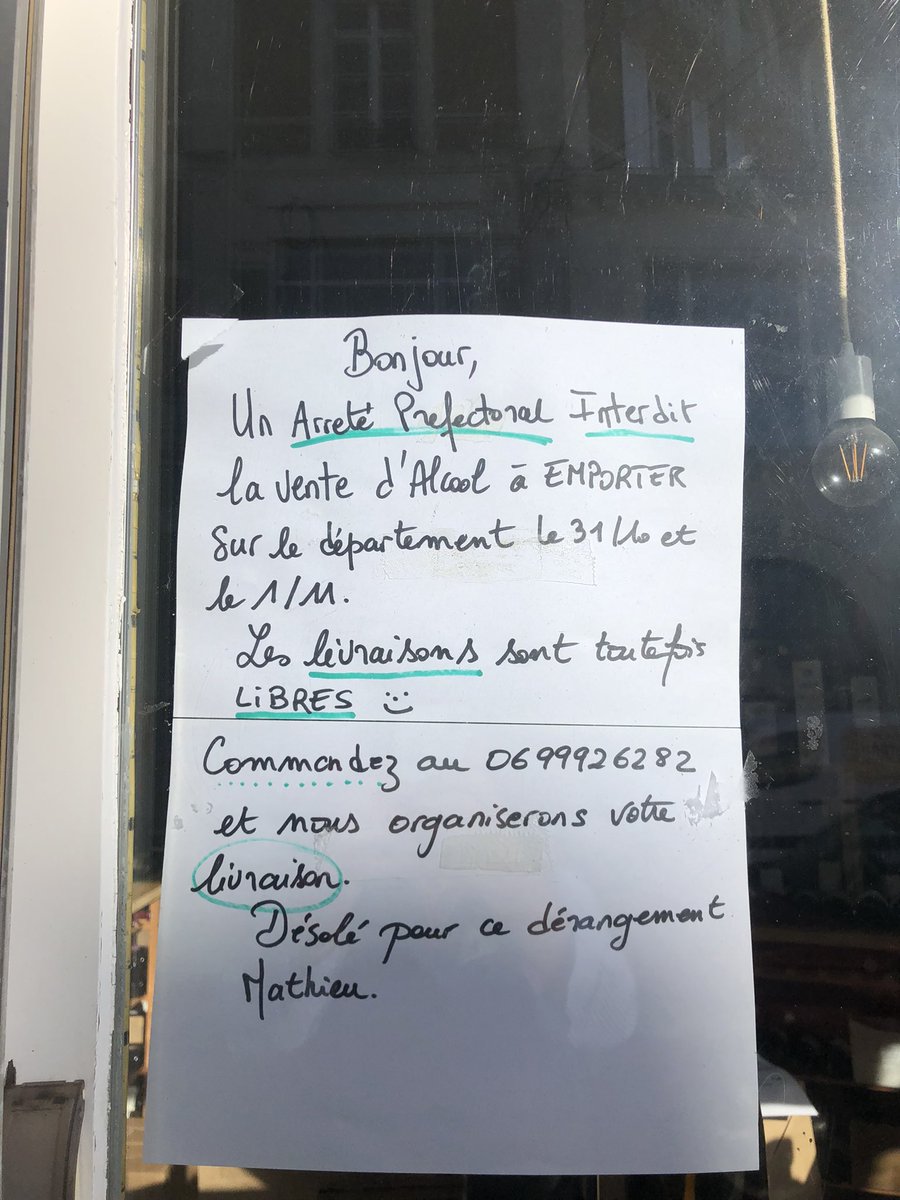 Bonjour,
Un Arreté Prefectoral Interdit
la vente d'Alcool à EMPORTER
Sur le département le 31/10 et
le 1/11.
Les livraisons sont toutefois
LiBRES :)
Commandez au 0699926282
et nous organiserons votre
livraison.
Désolé pour ce dérangement
Mathieu.